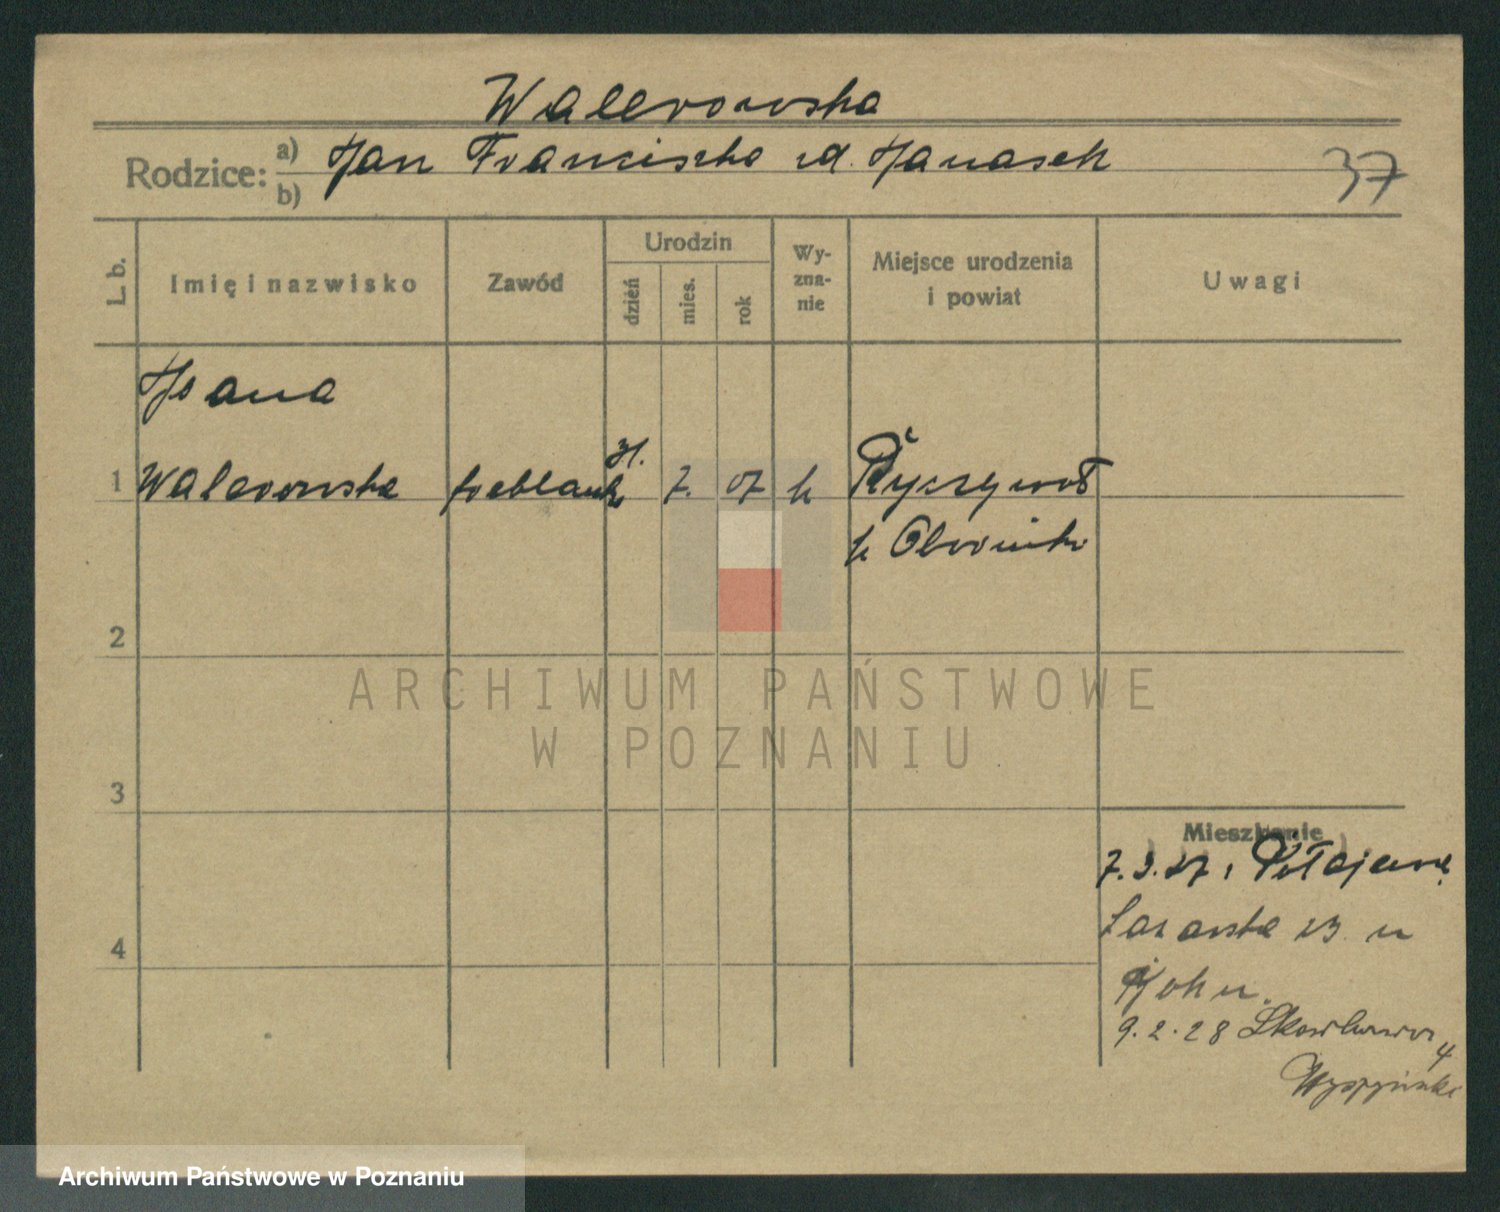 Walerowska
Rodzice: a) Jan Franciszka zd. Janasek
b)
37
L. b.
Imię i nazwisko
Zawód
Urodzin
dzień
mies.
rok
Wy-
zna-
nie
Miejsce urodzenia
i powiat
Uwagi
Joana
31.
1 Walerowska freblanka 7. 07 k Ryczywół
p Oborniki
2
ARCHIWUM PAŃSTWOWE
W POZNANIU
3
Mieszkanie
7.3.27 z Połajewa
23 u
4
9.2.28 4
Wyspiański
Archiwum Państwowe w Poznaniu